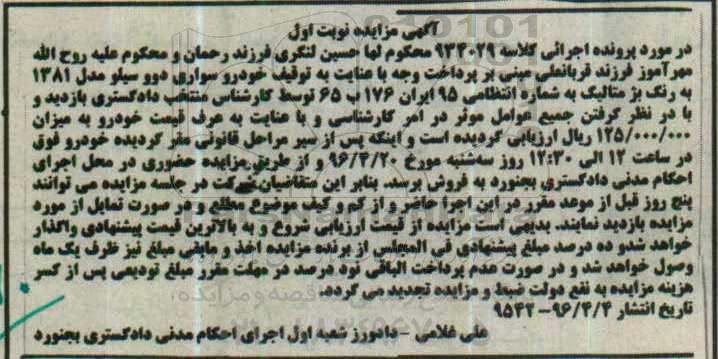 آگهی مزایده نوبت اول
در مورد پرونده اجرائی کلاسه ۹۳۴۰۲۹ محکوم لها حسین لنگری فرزند رحمان و محکوم علیه روح الله
مهرآموز فرزند قربانعلی مبنی بر پرداخت وجه با عنایت به توقیف خودرو سواری دوو سیلو مدل ۱۳۸۱
به رنگ بژ متالیک به شماره انتظامی ۹۵ ایران ۱۷۶ ب ۶۵ توسط کارشناس منتخب دادگستری بازدید و
با در نظر گرفتن جمیع عوامل موثر در امر کارشناسی و با عنایت به عرف قیمت خودرو به میزان
۱۲۵/۰۰۰/۰۰۰ ریال ارزیابی گردیده است و اینکه پس از سیر مراحل قانونی مقرر گردیده خودرو فوق
در ساعت ۱۲ الی ۱۲:۳۰ روز سه‌شنبه مورخ ۹۶/۴/۲۰ و از طریق مزایده حضوری در محل اجرای
احکام مدنی دادگستری بجنورد به فروش برسد. بنابر این متقاضیان شرکت در جلسه مزایده می توانند
پنج روز قبل از موعد مقرر در این اجرا حاضر و از کم و کیف موضوع مطلع و در صورت تمایل از مورد
مزایده بازدید نمایند. بدیهی است مزایده از قیمت ارزیابی شروع و به بالاترین قیمت پیشنهادی واگذار
خواهد شدو ده درصد مبلغ پیشنهادی فی المجلس از برنده مزایده اخذ و مابقی مبلغ نیز ظرف یک ماه
وصول خواهد شد و در صورت عدم پرداخت الباقی نود درصد در مهلت مقرر مبلغ تودیعی پس از کسر
هزینه مزایده به نفع دولت ضبط و مزایده تجدید می گردد.
تاریخ انتشار ۹۶/۴/۴-۹۵۴۲
علی غلامی -دادورز شعبه اول اجرای احکام مدنی دادگستری بجنورد